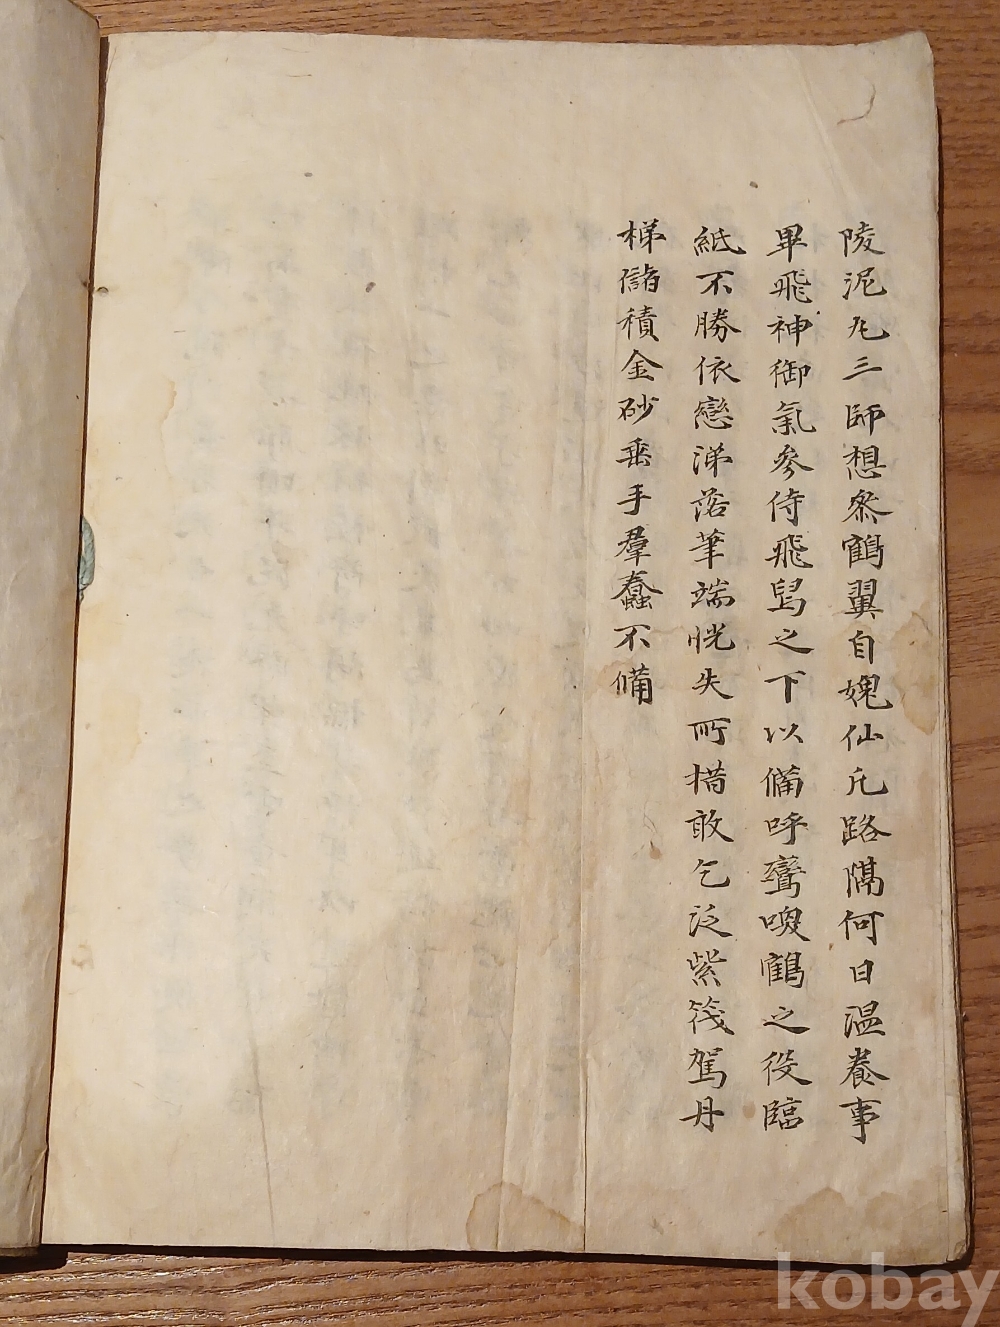 陵泥丸三師想叅鶴翼自媿仙凡路隔何日温養事
畢飛神御氣參侍飛舄之下以備呼鸞喚鶴之役臨
紙不勝依戀涕落筆端恍失所措敢乞泛紫筏駕丹
梯儲積金砂垂手羣蠢不備
kobay